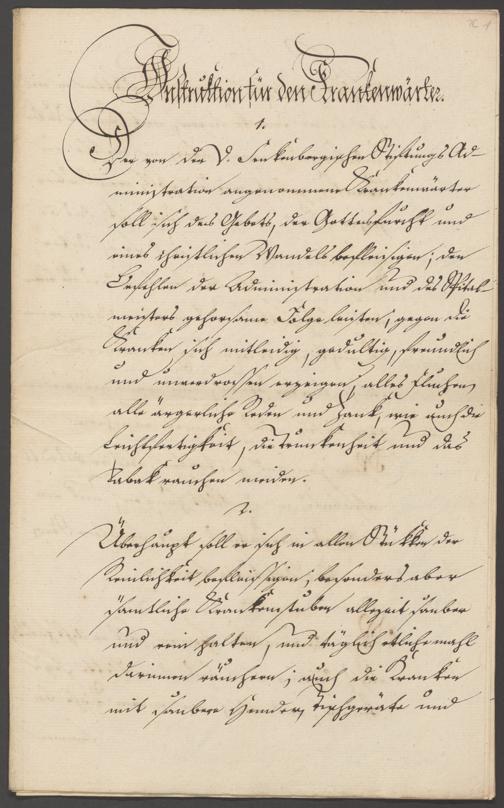 Instruktion für den Krankenwärter.
1.
Der von der D. Senkenbergischen Stiftungs Ad-
ministration angenommene Krankenwärter
soll sich des Gebets, der Gottesfurcht und
eines christlichen Wandels befleissigen; den
Befehlen der Administration und des Spital-
meisters gehorsame Folge leisten; gegen die
Kranken sich mitleidig, gedultig, freundlich
und unverdrossen erzeigen; alles Fluchen,
alle ärgerliche Reden und Zank, wie auch die
Leichtfertigkeit, die Trunckenheit und das
Tabak rauchen meiden.
2.
Überhaupt soll er sich in allen Stükken der
Reinlichkeit befleissigen, besonders aber
sämtliche Krankenstuben allezeit sauber
und rein halten, und täglich etliche mahl
darinnen räuchern; auch die Kranken
mit saubere Hemder, Tischgeräte und